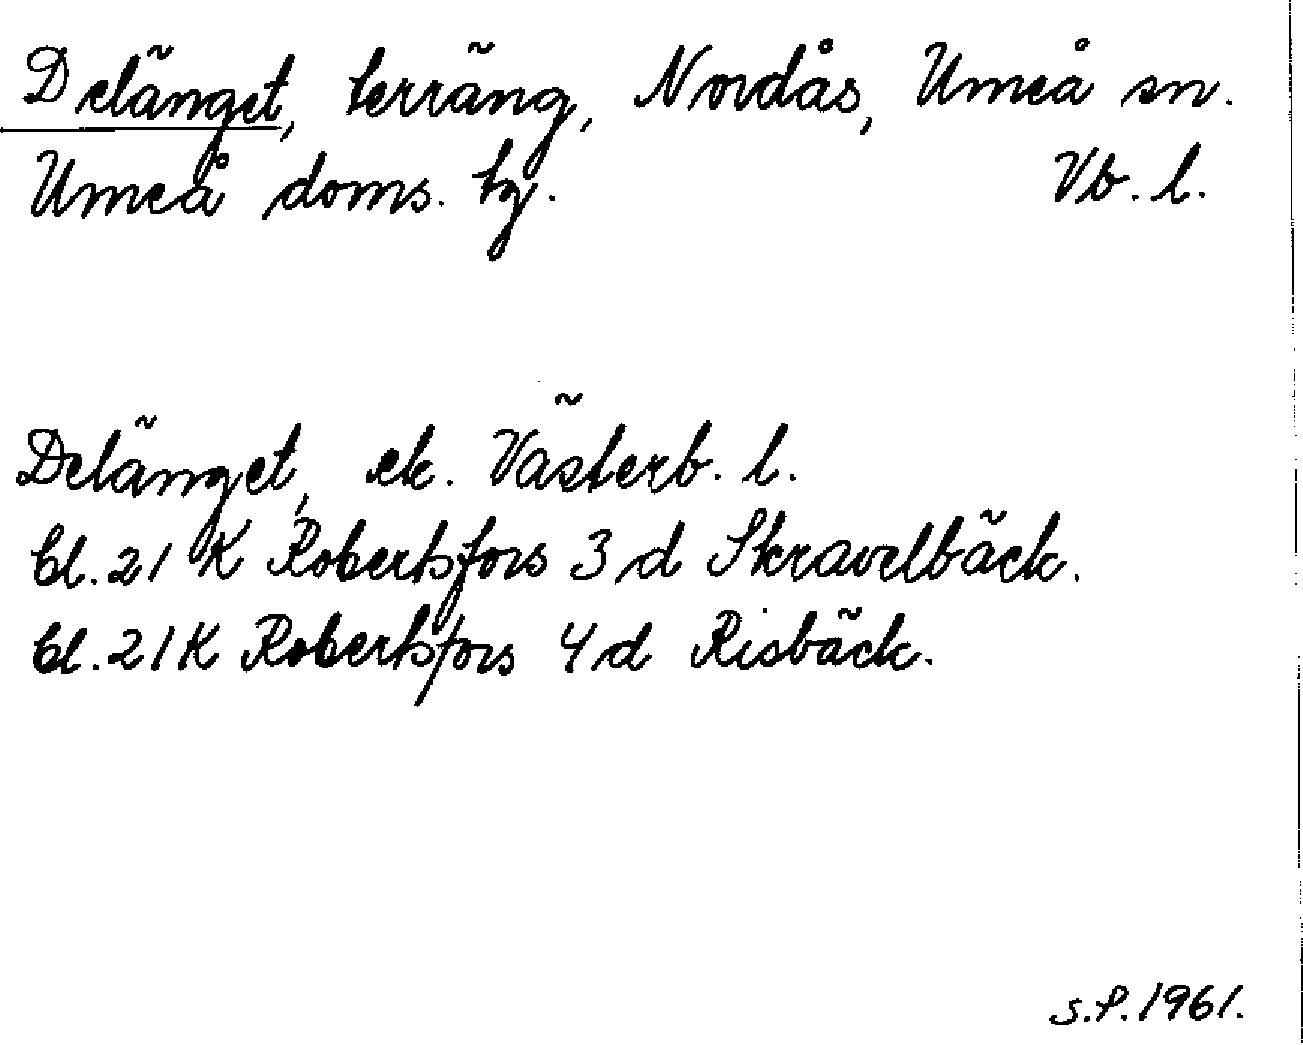 Delänget, terräng, Nordås, Umeå sn.
Umeå doms. tg. Vb. l.
Delänget, ek. Västerb. l.
bl. 21 K Robertsfors 3 d Skravelbäck.
bl. 21 K Robertsfors 4 d Risbäck.
S.P. 1961.